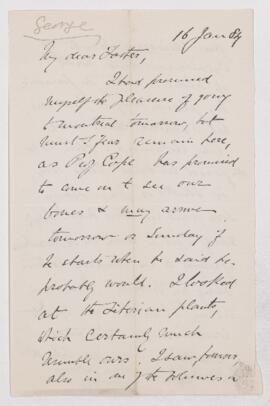 George
16 Jan 84
My dear Father,
I had promised
myself the pleasure of going
to Montreal tomorrow, but
must I fear remain here,
as Prof Cope has promised
to come on & see our
bones & may arrive
tomorrow or Sunday if
he starts when he said he
probably would. I looked
at the Silurian plants,
which certainly much
resemble ours. I saw
also in one of the volumes